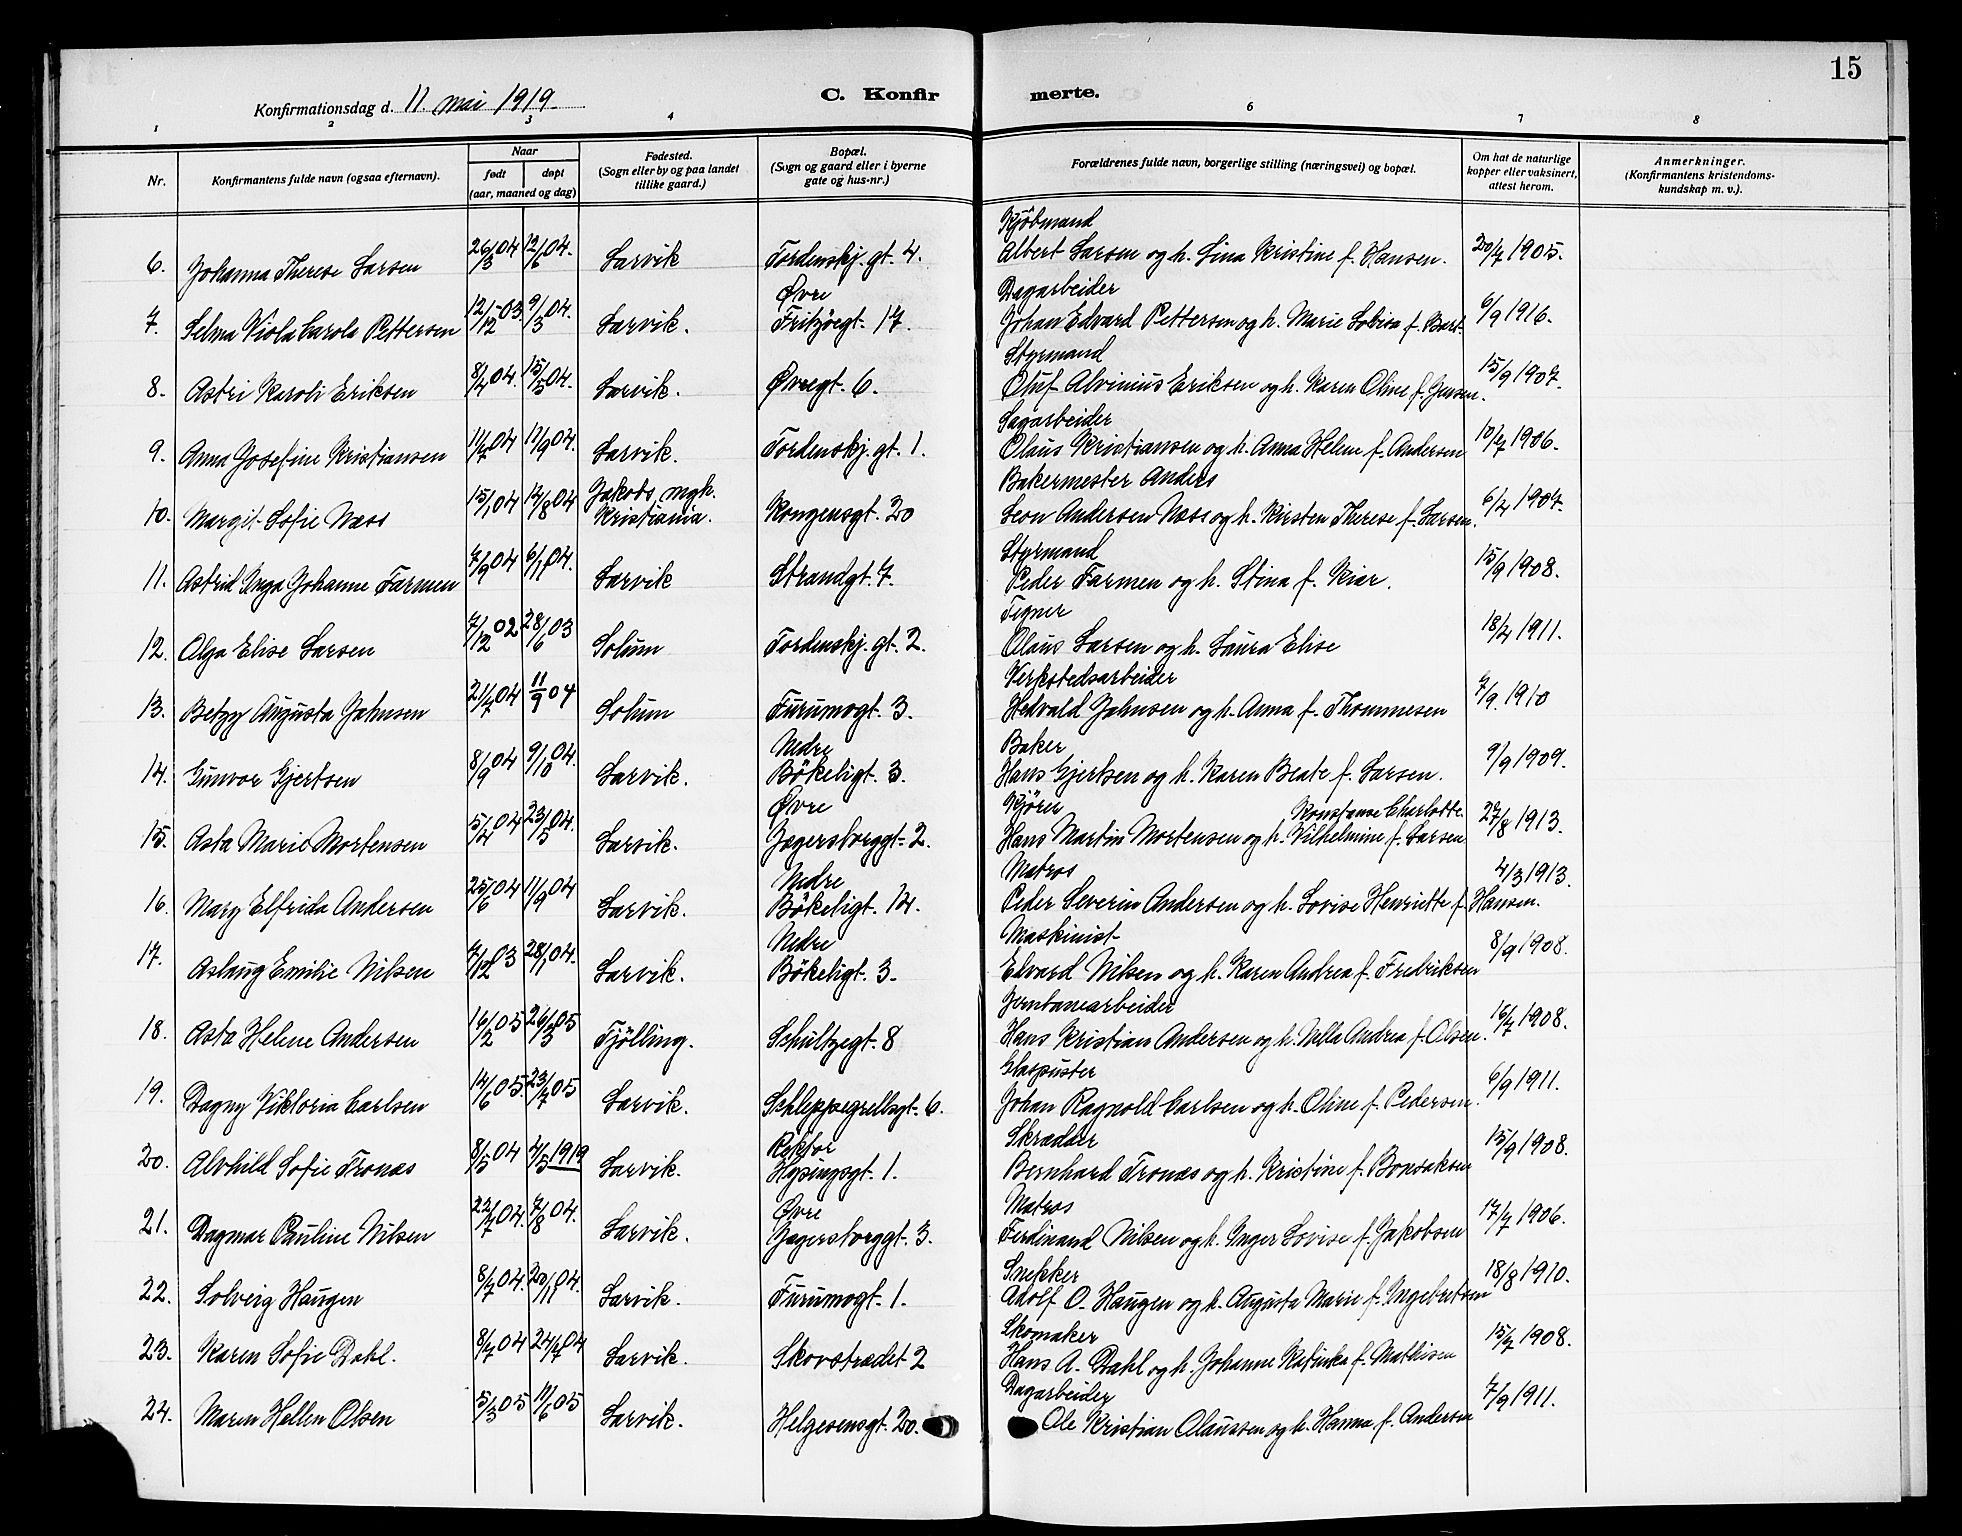 15
Konfirmationsdag d. 11. mai 1919.
C. Konfir merte.
1 2 3 4 6 7 8
Nr. Konfirmantens fulde navn (ogsaa efternavn). Naar født døpt (aar, maaned og dag) Fødested. (Sogn eller by og paa landet tillike gaard.) Bopæl. (Sogn og gaard eller i byerne gate og hus-nr.) Forældrenes fulde navn, borgerlige stilling (næringsvei) og bopæl. Om hat de naturlige kopper eller vaksinert, attest herom. Anmerkninger. (Konfirmantens kristendoms- kundskap m. v.).
Kjöbmand
6. Johanna Therese Larsen 26/3 04 12/6 04. Larvik Tordenskj. gt. 4. Albert Larsen og h. Lina Kristine f. Hansen. 20/7 1905.
Øvre Dagarbeider
7. Selma Viola Carola Pettersen 12/12-03. 9/3 04. Larvik. Fritzöegt. 17. Johan Edvard Pettersen og h. Marie Lovisa f. Bart. 6/9 1916.
Styrmand
8. Astri Karoli Eriksen 8/4 04. 15/5 04. Larvik. Øvregt. 6. Oluf Alvinius Eriksen og h. Karen Oline f. Jensen. 15/9 1907.
Sagarbeider
9. Anna Josefine Kristiansen 11/7 04 11/9 04. Larvik. Tordenskj. gt. 1. Olaus Kristiansen og h. Anna Helene f. Andersen 10/7 1906.
Jakobs, mgh. Bakermester Anders
10. Margit Sofie Næss 15/1 04 14/8 04 Kristiania. Kongensgt. 20 Leon Andersen Næss og h. Kirsten Therese f. Larsen. 6/4 1907.
Styrmand
11. Astrid Inga Johanne Farmen 7/9 04 6/11 04. Larvik Strandgt. 7. Peder Farmen og h. Stina f. Kiær. 15/9 1908.
Tegner
12. Alga Elise Larsen 7/12 02 28/6 03 Solum Tordenskj. gt. 2. Olaus Larsen og h. Laura Elise 18/4 1911.
Verkstedsarbeider
13. Betzy Augusta Jahnsen 21/7 04 11/9 04 Solum Furumogt. 3. Hedvald Jahnsen og h. Anna f. Thommesen 7/9. 1910
Nedre Baker
14. Gunvor Gjertsen 8/9 04 9/10 04. Larvik. Bökeligt. 3. Hans Gjertsen og h. Karen Beate f. Larsen. 9/9 1909.
Øvre Kjörer Konstanse Charlotte
15. Asta Marie Mortensen 5/4 04 23/5 04. Larvik. Jegersborggt. 2. Hans Martin Mortensen og h. Vilhelmine f. Larsen 27/8 1913.
Nedre Matros
16. Mary Elfrida Andersen 25/6 04 11/9 04 Larvik. Bökeligt. 14. Peder Severin Andersen og h. Lovise Henriette f. Hansen. 4/3 1913.
Nedre Maskinist
17. Aslaug Emilie Nilsen 7/12 03 28/1 04. Larvik. Bökeligt. 3. Edvard Nilsen og h. Karen Andrea f. Fredriksen 8/9 1908.
Jernbanearbeider
18. Asta Helene Andersen 16/2 05 26/3 05 Tjölling. Schultzegt. 8 Hans Kristian Andersen og h. Nella Andrea f. Olsen. 16/7 1908.
Glaspuster
19. Dagny Viktoria Carlsen 14/6 05. 23/7 05 Larvik. Schleppegrellsgt. 6. Johan Ragnold Carlsen og h. Oline f. Pedersen. 6/9 1911.
Rektor Skrædder
20. Alvhild Sofie Tronæs 8/5 04 4/5 1919 Larvik. Hysingsgt. 1. Bernhard Tronæs og h. Kristine f. Bonsaksen 15/9 1908.
Øvre Matros
21. Dagmar Pauline Nilsen 22/7 04. 7/8 04. Larvik. Jegersborggt. 3. Ferdinand Nilsen og h. Inger Lovise f. Jakobsen 17/7 1906.
Snekker
22. Solveig Haugen 8/7 04. 20/11 04. Larvik. Furumogt. 1. Adolf O. Haugen og h. Augusta Marie f. Ingebretsen 18/8 1910.
Skomaker
23. Karen Sofie Dahl. 8/7 04 24/7 04 Larvik. Skovstrædet 2 Hans A. Dahl og h. Johanne Katinka f. Mathisen 15/7 1908.
Dagarbeider
24. Maren Hellen Olsen 5/3 05 11/6 05 Larvik. Helgesensgt. 20. Ole Kristian Olaussen og h. Hanna f. Andersen 7/9 1911.